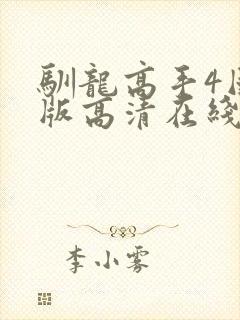 馴龍高手4國
版高清在綫
李小雾